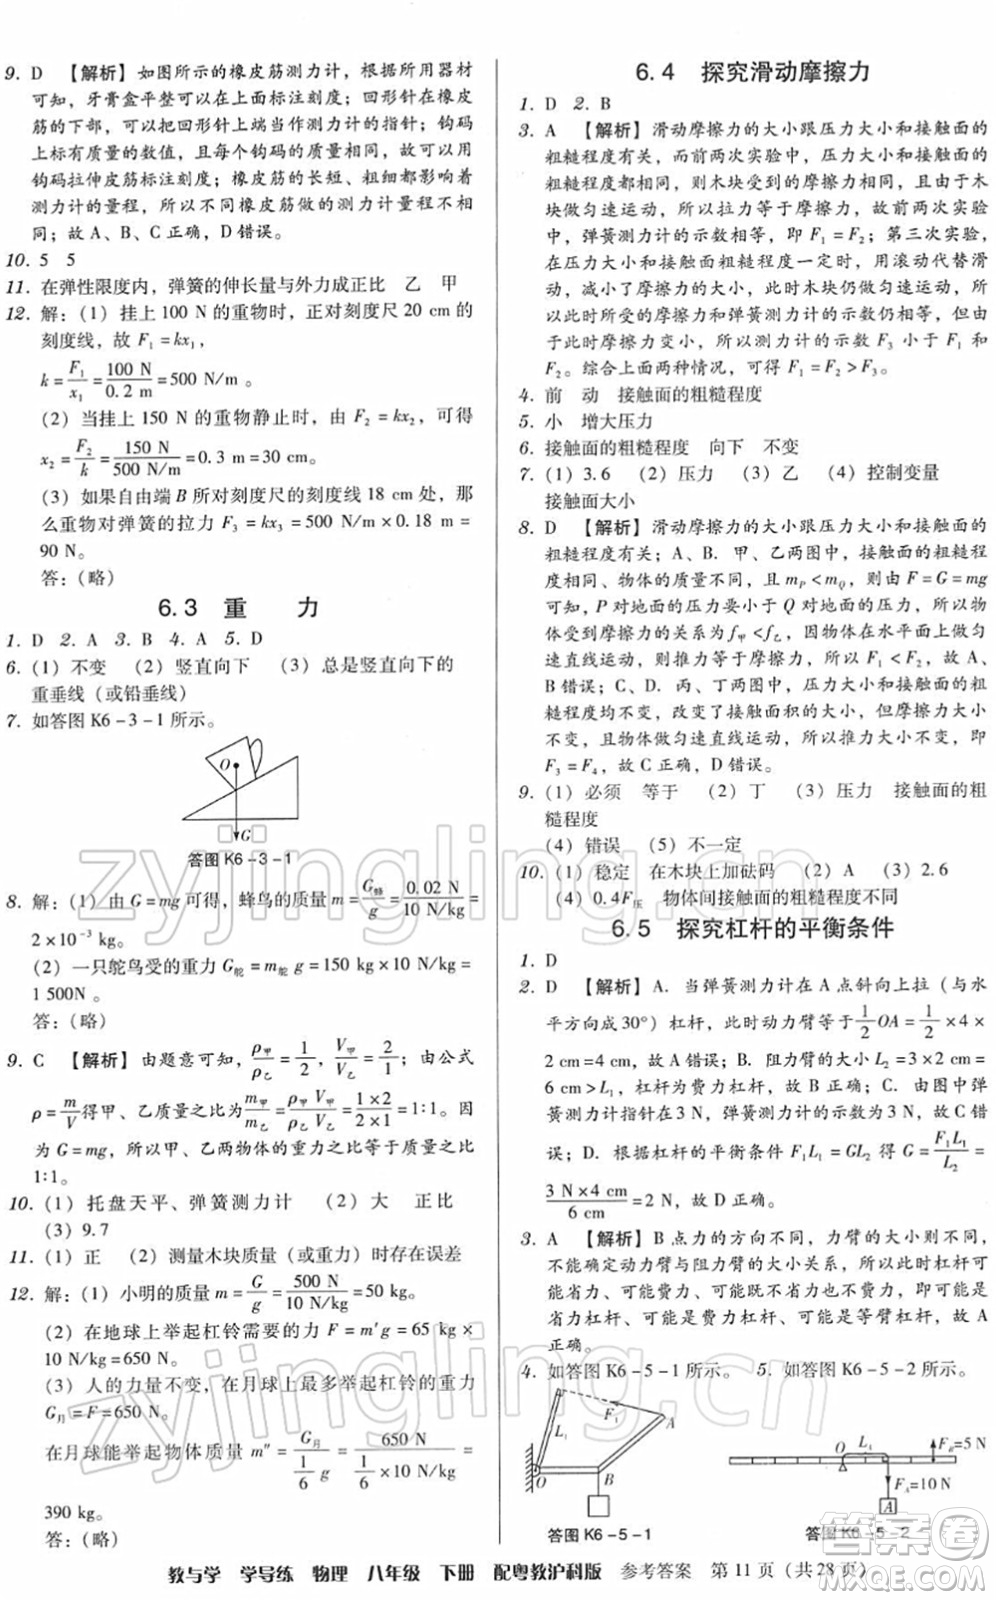 9. D 【解析】如图所示的橡皮筋测力计，根据所用器材
可知，牙膏盒平整可以在上面标注刻度；回形针在橡皮
筋的下部，可以把回形针上端当作测力计的指针；钩码
上标有质量的数值，且每个钩码的质量相同，可以利用
钩码拉伸皮筋标注刻度；橡皮筋的长短、粗细都影响着
测力计的量程，所以不同橡皮筋做的测力计量程不相
同；故 A、B、C 正确，D 错误。
10. 5 5
11. 在弹性限度内，弹簧的伸长量与外力成正比 乙 甲
12. 解：(1) 挂上 100 N 的重物时，正对刻度尺 20 cm 的
刻度线，故 F₁ = kx₁，
k = F₁/x₁ = 100 N/0.2 m = 500 N/m 。
(2) 当挂上 150 N 的重物静止时，由 F₂ = kx₂，可得
x₂ = F₂/k = 150 N/500 N/m = 0.3 m = 30 cm。
(3) 如果自由端 B 所对刻度尺的刻度线 18 cm 处，那
么重物对弹簧的拉力 F₃ = kx₃ = 500 N/m × 0.18 m =
90 N。
答：(略)
6.3 重 力
1. D 2. A 3. B 4. A 5. D
6. (1) 不变 (2) 竖直向下 (3) 总是竖直向下的
重垂线（或铅垂线）
7. 如答图 K6 - 3 - 1 所示。
O
G
答图 K6 - 3 - 1
8. 解：(1) 由 G = mg 可得，蜂鸟的质量 m = G蜂/g = 0.02 N/10 N/kg =
2 × 10⁻³ kg。
(2) 一只鸵鸟受的重力 G鸵 = m鸵 g = 150 kg × 10 N/kg =
1 500N 。
答：(略)
9. C 【解析】由题意可知，ρ甲/ρ乙 = 1/2，V甲/V乙 = 2/1；由公式
ρ = m/V 得甲、乙质量之比为 m甲/m乙 = ρ甲 V甲/ρ乙 V乙 = 1×2/2×1 = 1∶1。因
为 G = mg，所以甲、乙两物体的重力之比等于质量之比
1∶1。
10. (1) 托盘天平、弹簧测力计 (2) 大 正比
(3) 9.7
11. (1) 正 (2) 测量木块质量（或重力）时存在误差
12. 解：(1) 小明的质量 m = G/g = 500 N/10 N/kg = 50 kg。
(2) 在地球上举起杠铃需要的力 F = m′g = 65 kg ×
10 N/kg = 650 N。
(3) 人的力量不变，在月球上最多举起杠铃的重力
G月 = F = 650 N。
在月球能举起物体质量 m″ = G月/(1/6 g) = 650 N/(1/6 × 10 N/kg) =
390 kg。
答：(略)
6.4 探究滑动摩擦力
1. D 2. B
3. A 【解析】滑动摩擦力的大小跟压力大小和接触面的
粗糙程度有关，而前两次实验中，压力大小和接触面的
粗糙程度都相同，则木块受到的摩擦力相同，又由于木
块做匀速运动，所以拉力等于摩擦力，故前两次实验
中，弹簧测力计的示数相等，即 F₁ = F₂；第三次实验，
在压力大小和接触面粗糙程度一定时，用滚动代替滑
动，减小了摩擦力的大小，此时木块仍做匀速运动，所
以此时所受的摩擦力和弹簧测力计的示数仍相等，但
由于摩擦力变小，所以测力计的示数 F₃ 小于 F₁ 和
F₂。综合上面两种情况，可得 F₁ = F₂ > F₃。
4. 前 动 接触面的粗糙程度
5. 小 增大压力
6. 接触面的粗糙程度 向下 不变
7. (1) 3.6 (2) 压力 (3) 乙 (4) 控制变量
接触面大小
8. D 【解析】滑动摩擦力的大小跟压力大小和接触面的
粗糙程度有关；A、B. 甲、乙两图中，接触面的粗糙程
度相同、物体的质量不同，且 mP < mQ，则由 F = G = mg
可知，P 对地面的压力小于 Q 对地面的压力，所以物
体受到摩擦力的关系为 f甲 < f乙，因物体在水平面上做匀
速直线运动，则推力等于摩擦力，所以 F₁ < F₂，故 A、
B 错误；C、D. 丙、丁两图中，压力大小和接触面的粗糙
程度均不变，改变了接触面积的大小，但摩擦力大小
不变，且物体做匀速直线运动，所以推力大小不变，即
F₃ = F₄，故 C 正确，D 错误。
9. (1) 必须 等于 (2) 丁 (3) 压力 接触面的粗
糙程度
(4) 错误 (5) 不一定
10. (1) 稳定 在木块上加砝码 (2) A (3) 2.6
(4) 0.4F压 物体间接触面的粗糙程度不同
6.5 探究杠杆的平衡条件
1. D
2. D 【解析】A. 当弹簧测力计在 A 点斜向上拉（与水
平方向成30°）杠杆，此时动力臂等于 1/2 OA = 1/2 × 4 ×
2 cm = 4 cm，故 A 错误；B. 阻力臂的大小 L₂ = 3 × 2 cm =
6 cm > L₁，杠杆为费力杠杆，故 B 正确；C. 由图中弹
簧测力计指针在 3 N，弹簧测力计的示数为 3 N，故 C 错
误；D. 根据杠杆的平衡条件 F₁L₁ = GL₂ 得 G = F₁L₁/L₂ =
3 N × 4 cm/6 cm = 2 N，故 D 正确。
3. A 【解析】B 点力的方向不同，力臂的大小则不同，
不能确定动力臂与阻力臂的大小关系，所以此时杠杆可
能省力、可能费力、也可能不省力也不费力，即可能是省
力杠杆、可能是费力杠杆、可能是等臂杠杆，故 A
正确。
4. 如答图 K6 - 5 - 1 所示。 5. 如答图 K6 - 5 - 2 所示。
L₁ F₁ A O B
答图 K6 - 5 - 1
O L₁ FB=5 N FA=10 N A
答图 K6 - 5 - 2
教与学 学导练 物理 八年级 下册 配粤教沪科版 参考答案 第 11 页（共 28 页）
zyjingling.com
zyjingling.com
作业精灵